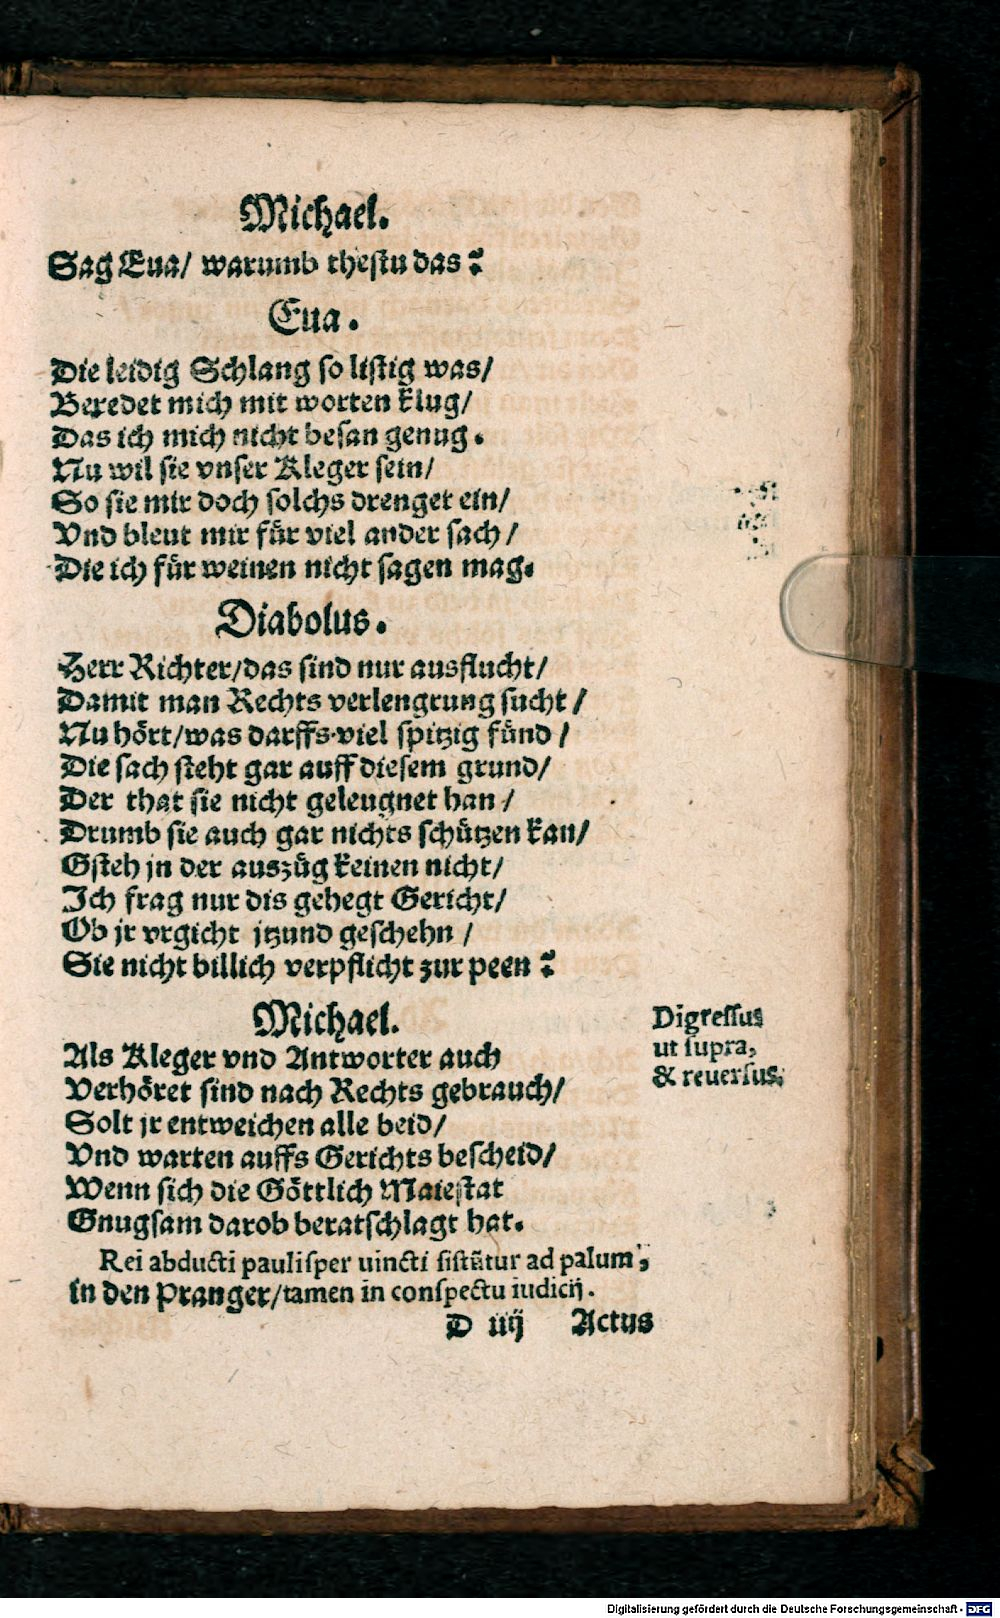 Michael.
Sag Eua/ warumb thestu das?
Eua.
Die leidig Schlang so listig was/
Beredet mich mit worten klug/
Das ich mich nicht besan genug.
Nu wil sie vnser Kleger sein/
So sie mir doch solchs drenget ein/
Vnd bleut mir für viel ander sach/
Die ich für weinen nicht sagen mag.
Diabolus.
Herr Richter/das sind nur ausflucht/
Damit man Rechts verlengrung sucht/
Nu hört/was darffs viel spitzig fünd/
Die sach steht gar auff diesem grund/
Der that sie nicht geleugnet han/
Drumb sie auch gar nichts schützen kan/
Gsteh jn der auszüg keinen nicht/
Ich frag nur dis gehegt Gericht/
Ob jr vrgicht jtzund geschehn/
Sie nicht billich verpflicht zur peen?
Michael.
Als Kleger vnd Antworter auch
Verhöret sind nach Rechts gebrauch/
Solt jr entweichen alle beid/
Vnd warten auffs Gerichts bescheid/
Wenn sich die Göttlich Maiestat
Gnugsam darob beratschlagt hat.
Digressus
ut supra,
& reuersus.
Rei abducti paulisper uincti sistūtur ad palum,
in den Pranger/tamen in conspectu iudicij.
D iiij Actus
Digitalisierung gefördert durch die Deutsche Forschungsgemeinschaft - DFG